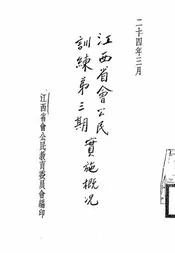 二十四年三月
江西省會公民
訓練第三期實施概況
江西省會公民教育委員會編印